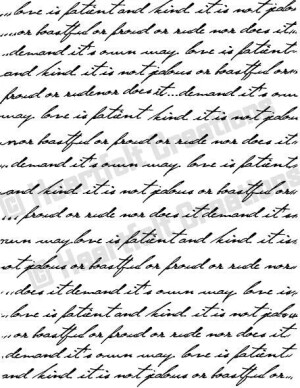 ...love is patient and kind. it is not jealou
....or boastful or proud or rude nor does it..
...demand it's own way. love is patient
and kind. it is not jealous or boastful or...
proud or rude nor does it...demand it's own
way. love is patient kind. it is not jealous
nor boastful or proud or rude nor does it
...demand it's own way. love is patient
and kind. it is not jealous or boastful or..
... proud or rude nor does it demand it's
own way love is patient and kind. it is
not jealous or boastful or proud or rude nor
...does it demand it's own way. love is..
..love is patient and kind. it is not jealous
..or boastful or proud or rude nor does it
demand it's own way. love is patient
and kind. it is not jealous or boastful or...
© Heartfelt Creations
© Heartfelt Creations